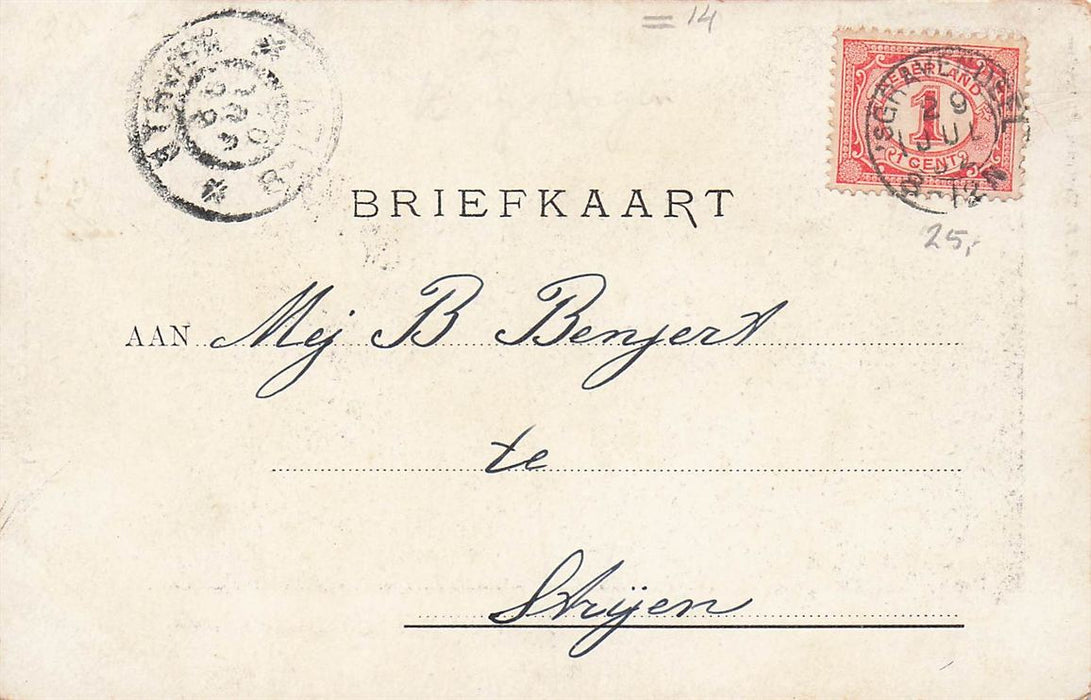 = 14
NEDERLAND
1
1 CENT
'SGRAVENDEEL
29
JUL
25,-
BRIEFKAART
AAN Mej B Benjert
te
Strijen